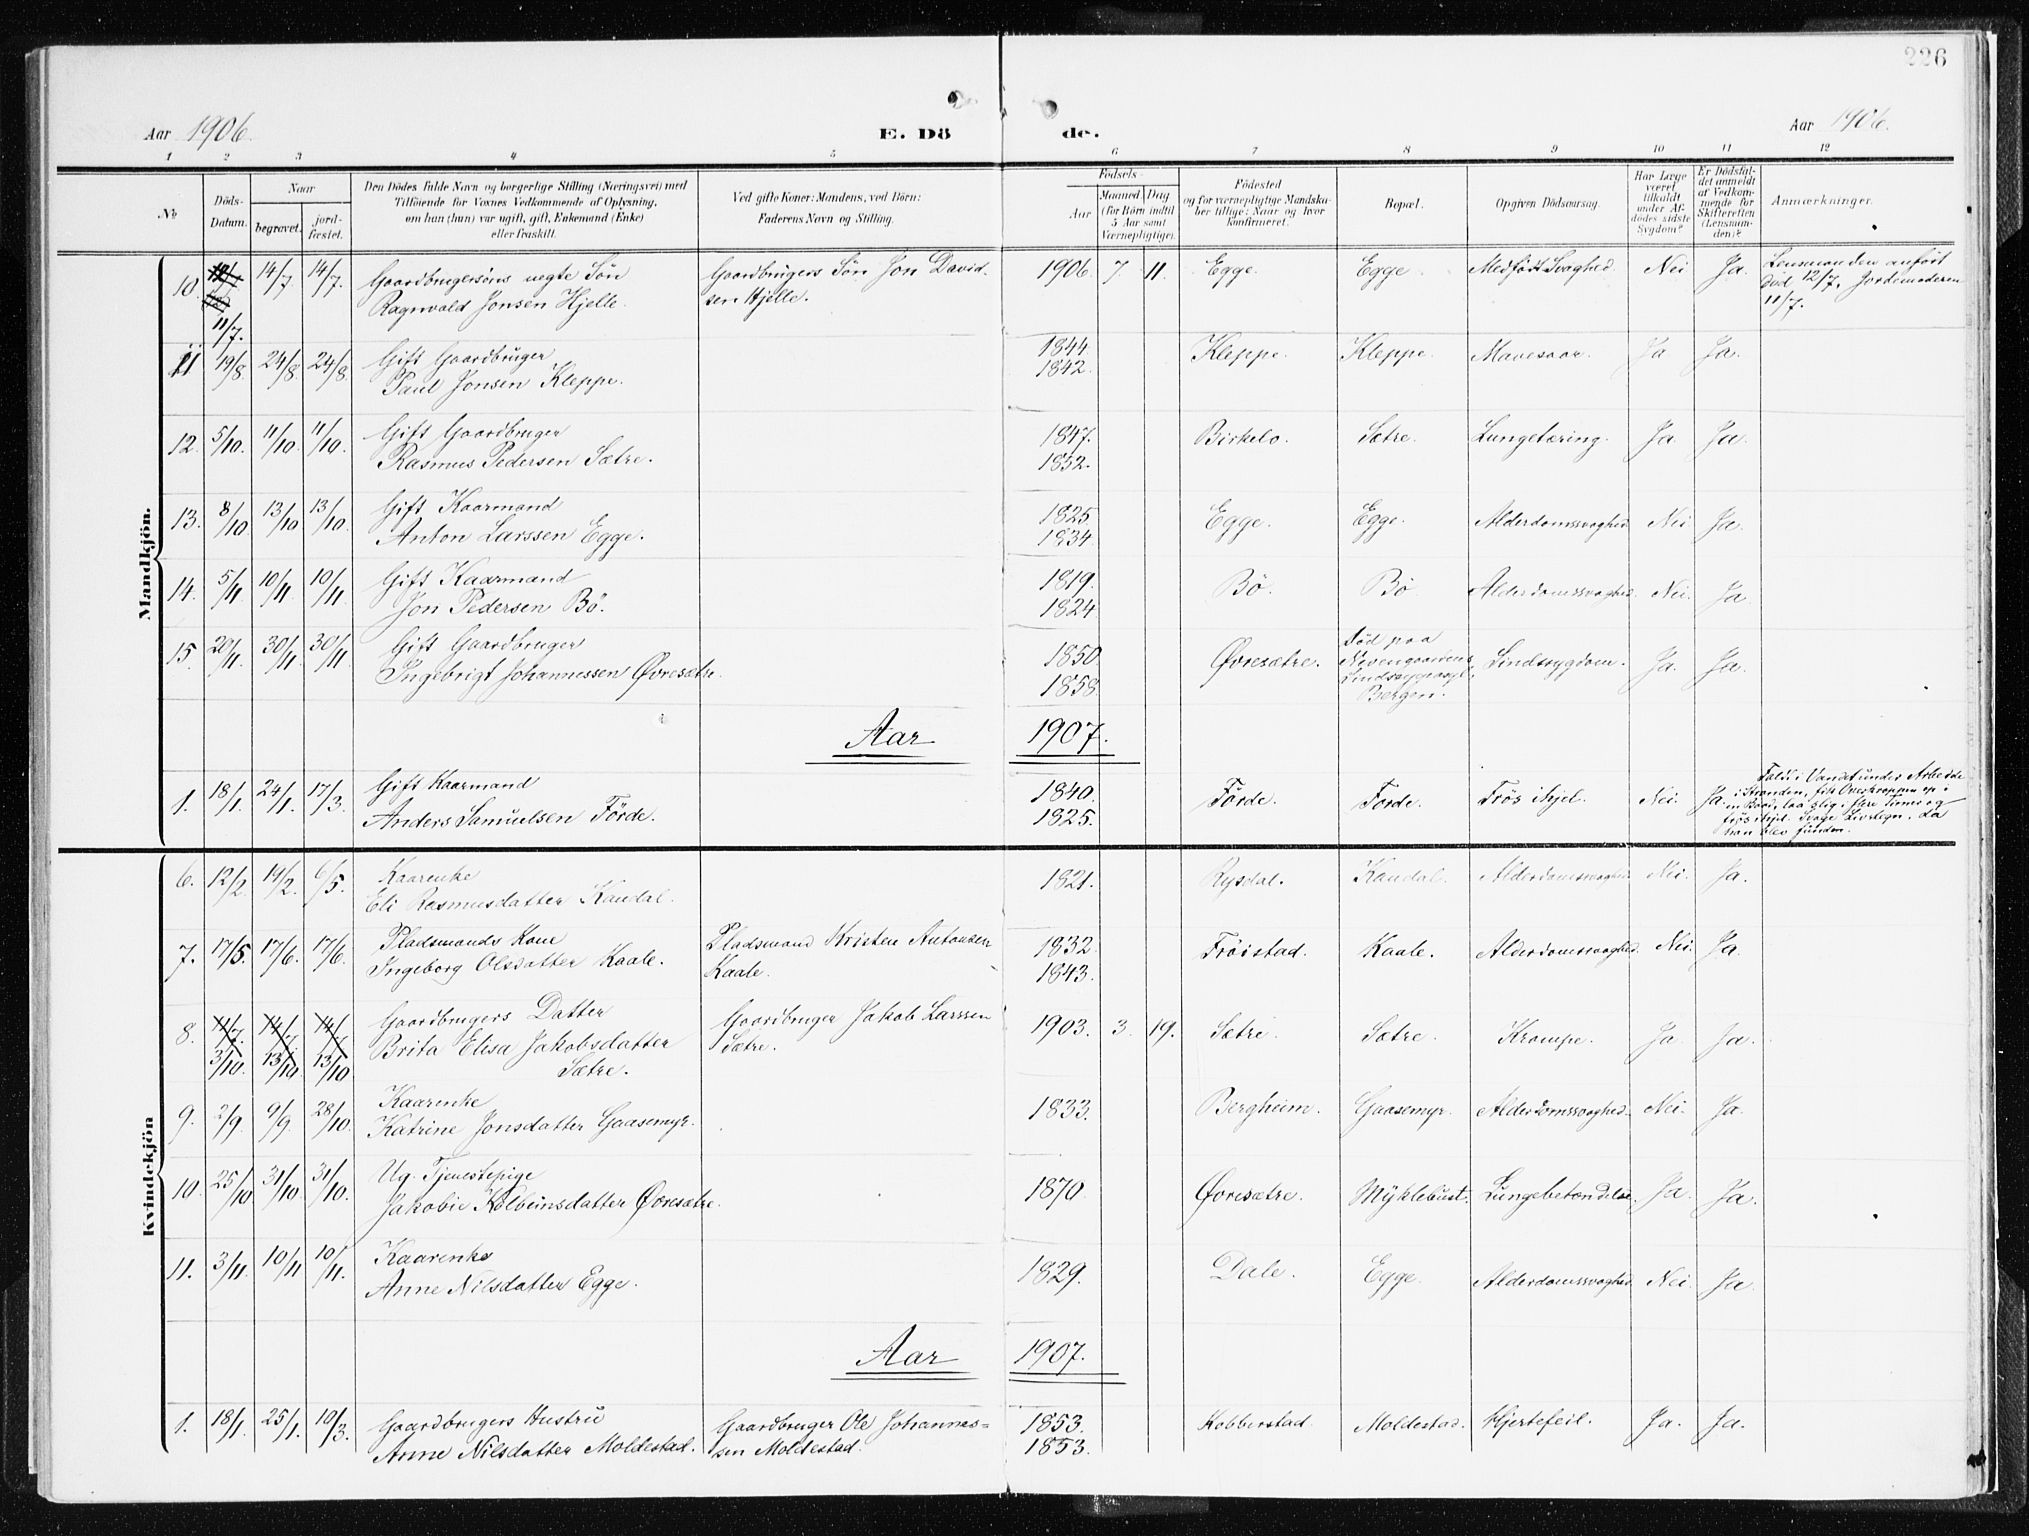 226
Aar 1906.
E. Dö
de.
Aar 1906.
1 2 3 4 5 6 7 8 9 10 11 12
№
Döds-
Datum.
Naar
begravet.
jord-
fæstet.
Den Dödes fulde Navn og borgerlige Stilling (Næringsvei) med
Tilföiende for Voxnes Vedkommende af Oplysning,
om han (hun) var ugift, gift, Enkemand (Enke)
eller fraskilt.
Ved gifte Koner: Mandens, ved Börn:
Faderens Navn og Stilling.
Födsels-
Aar
Maaned
Dag
(for Börn indtil
5 Aar samt
Værnepligtige)
Födested
og for værnepligtige Mandska-
ber tillige: Naar og hvor
konfirmeret.
Bopæl.
Opgiven Dödsaarsag.
Har Læge
været
tilkaldt
under Af-
dödes sidste
Sygdom?
Er Dödsfal-
det anmeldt
af Vedkom-
mende for
Skifteretten
(Lensman-
den)?
Anmærkninger.
Mandkjön.
10. 11/7. 14/7 14/7. Gaardbrugersöns uegte Sön
Ragnvald Jonsen Hjelle.
Gaardbrugers Sön Jon David-
sen Hjelle.
1906. 7. 11. Egge. Egge. Medfödt Svaghed. Nei Ja.
Lensmanden anfört
död 12/7, Jordemoderen
11/7.
11 19/8. 24/8 24/8 Gift Gaardbruger
Paul Jonsen Kleppe.
1844.
1842.
Kleppe. Kleppe. Mavesaar. Ja Ja.
12. 5/10. 11/10 11/10. Gift Gaardbruger
Rasmus Pedersen Sætre.
1847.
1852.
Birkelo. Sætre. Lungetæring. Ja Ja.
13. 8/10 13/10 13/10. Gift Kaarmand
Anton Larssen Egge.
1825.
1834.
Egge. Egge. Alderdomssvaghed Nei Ja.
14. 5/11. 10/11 10/11. Gift Kaarmand
Jon Pedersen Bö.
1819.
1824.
Bö. Bö Alderdomssvaghed. Nei. Ja
15. 20/11. 30/11 30/11 Gift Gaardbruger
Ingebrigt Johannessen Øvresætre.
1850.
1858.
Øvresætre.
Död paa
Bergen.
Sindssygdom. Ja. Ja.
Aar 1907.
1. 18/1. 24/1. 17/3. Gift Kaarmand
Anders Samuelsen Förde.
1840.
1825.
Förde. Förde. Frös ihjel. Nei. Ja.
Faldt i Vandet under Arbeide
i Stranden, fik Overkroppen op i
en Baad, laa slig i flere Timer og
frös ihjel. Svage Livstegn, da
han blev funden.
Kvindekjön
6. 12/2. 19/2. 6/5. Kaarenke
Eli Rasmusdatter Kandal.
1821. Rysdal. Kandal. Alderdomssvaghed Nei. Ja.
7. 17/5. 17/6. 17/6. Pladsmands Kone
Ingeborg Olsdatter Kaale.
Pladsmand Kristen Antonsen
Kaale.
1832.
1843.
Fröistad. Kaale. Alderdomssvaghed. Nei. Ja.
8. 3/10. 13/10 13/10 Gaardbrugers Datter
Brita Elisa Jakobsdatter
Sætre.
Gaardbruger Jakob Larssen
Sætre.
1903. 3. 19. Sætre. Sætre. Krampe. Ja. Ja.
9. 2/9. 9/9. 28/10. Kaarenke
Katrine Jonsdatter Gaasemyr.
1833. Bergheim. Gaasemyr. Alderdomssvaghed. Nei. Ja.
10. 25/10 31/10 31/10. Ug. Tjenestepige
Jakobie Kolbeinsdatter Øvresætre.
1870. Øvresætre. Myklebust. Lungebetændelse. Ja. Ja.
11. 3/11. 10/11 10/11. Kaarenke
Anne Nilsdatter Egge.
1829. Dale. Egge. Alderdomssvaghed Nei. Ja.
Aar 1907.
1. 18/1. 25/1. 10/3. Gaardbrugers Hustru
Anne Nilsdatter Moldestad.
Gaardbruger Ole Johannes-
sen Moldestad.
1853.
1853.
Kobberstad. Moldestad. Hjertefeil. Ja. Ja.